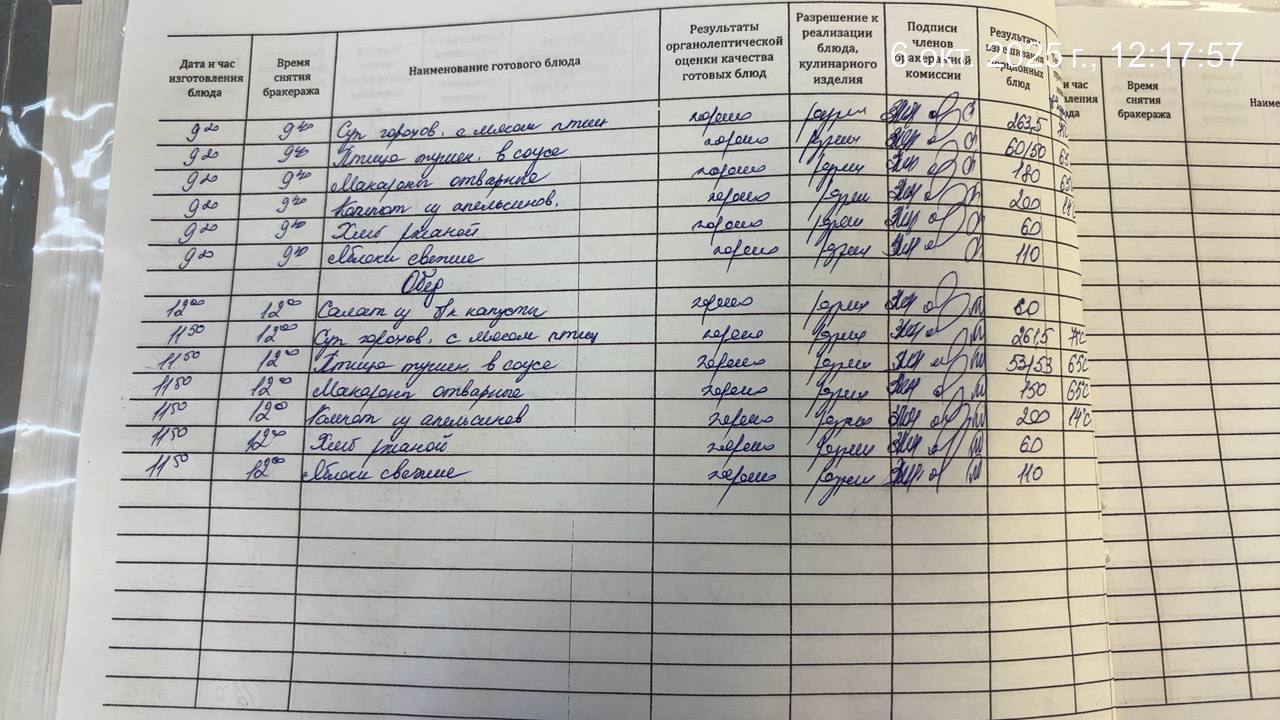 6 окт. 2025 г., 12:17:57
Дата и час изготовления блюда Время снятия бракеража Наименование готового блюда Результаты органолептической оценки качества готовых блюд Разрешение к реализации блюда, кулинарного изделия Подписи членов бракеражной комиссии Результаты взвешивания порционных блюд
9 20 9 40 Суп горохов. с мясом птицы хорошо разреш 263,5
9 20 9 40 Птица тушен. в соусе хорошо разреш 60/50
9 20 9 40 Макароны отварные хорошо разреш 180
9 20 9 40 Компот из апельсинов. хорошо разреш 200
9 20 9 40 Хлеб ржаной хорошо разреш 60
9 20 9 40 Яблоки свежие хорошо разреш 110
Обед
12 00 12 00 Салат из б/к капусты хорошо разреш 60
11 50 12 00 Суп горохов. с мясом птицы хорошо разреш 261,5
11 50 12 00 Птица тушен. в соусе хорошо разреш 53/53 65С
11 50 12 00 Макароны отварные хорошо разреш 150 65С
11 50 12 00 Компот из апельсинов хорошо разреш 200 14С
11 50 12 00 Хлеб ржаной хорошо разреш 60
11 50 12 00 Яблоки свежие хорошо разреш 110
и час
Время снятия бракеража